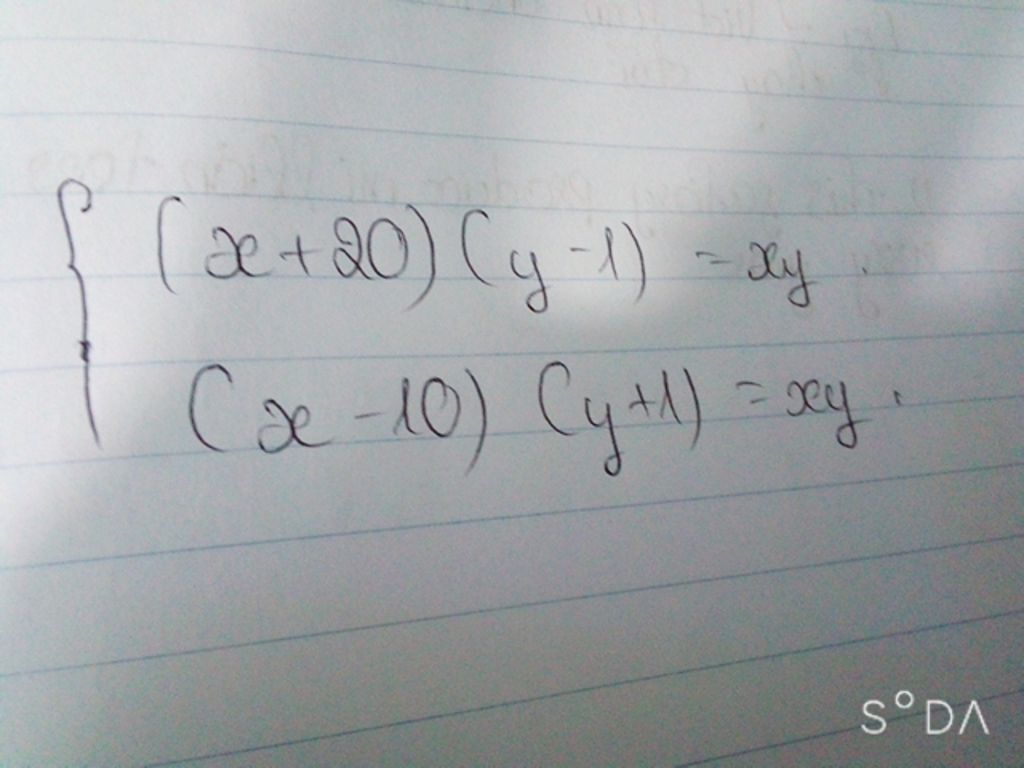 (x+20)(y-1) = xy.
(x-10) (y+1) = xy.
S°DA